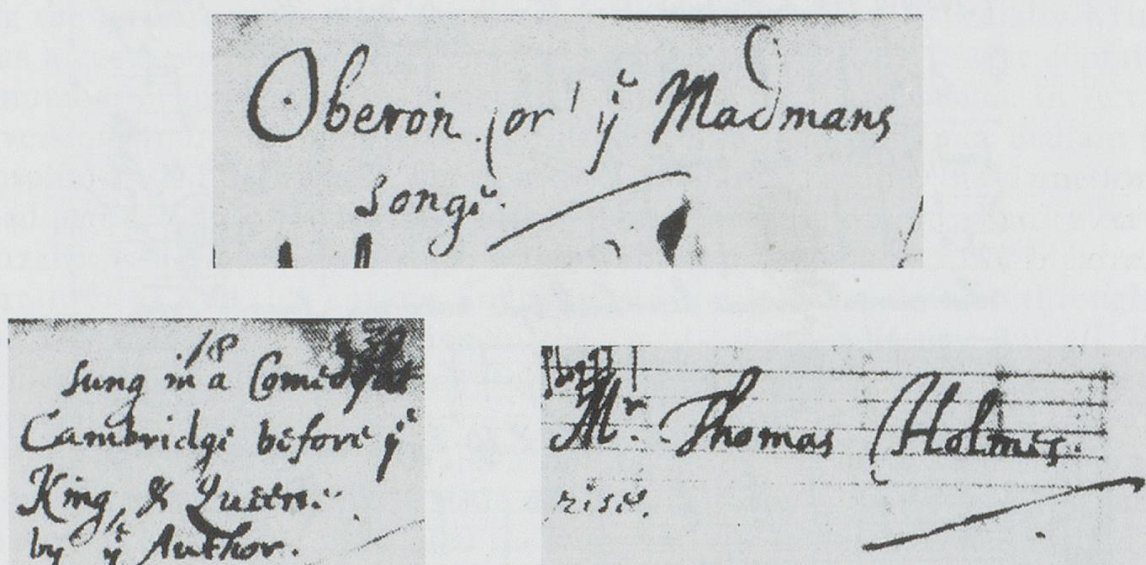 Oberon, or yͤ Madmans
songe.
18
sung in a Comedy at
Cambridge before yͤ
King, & Queene.
by yͤ Author.
Mr. Thomas Holmes.
rise.